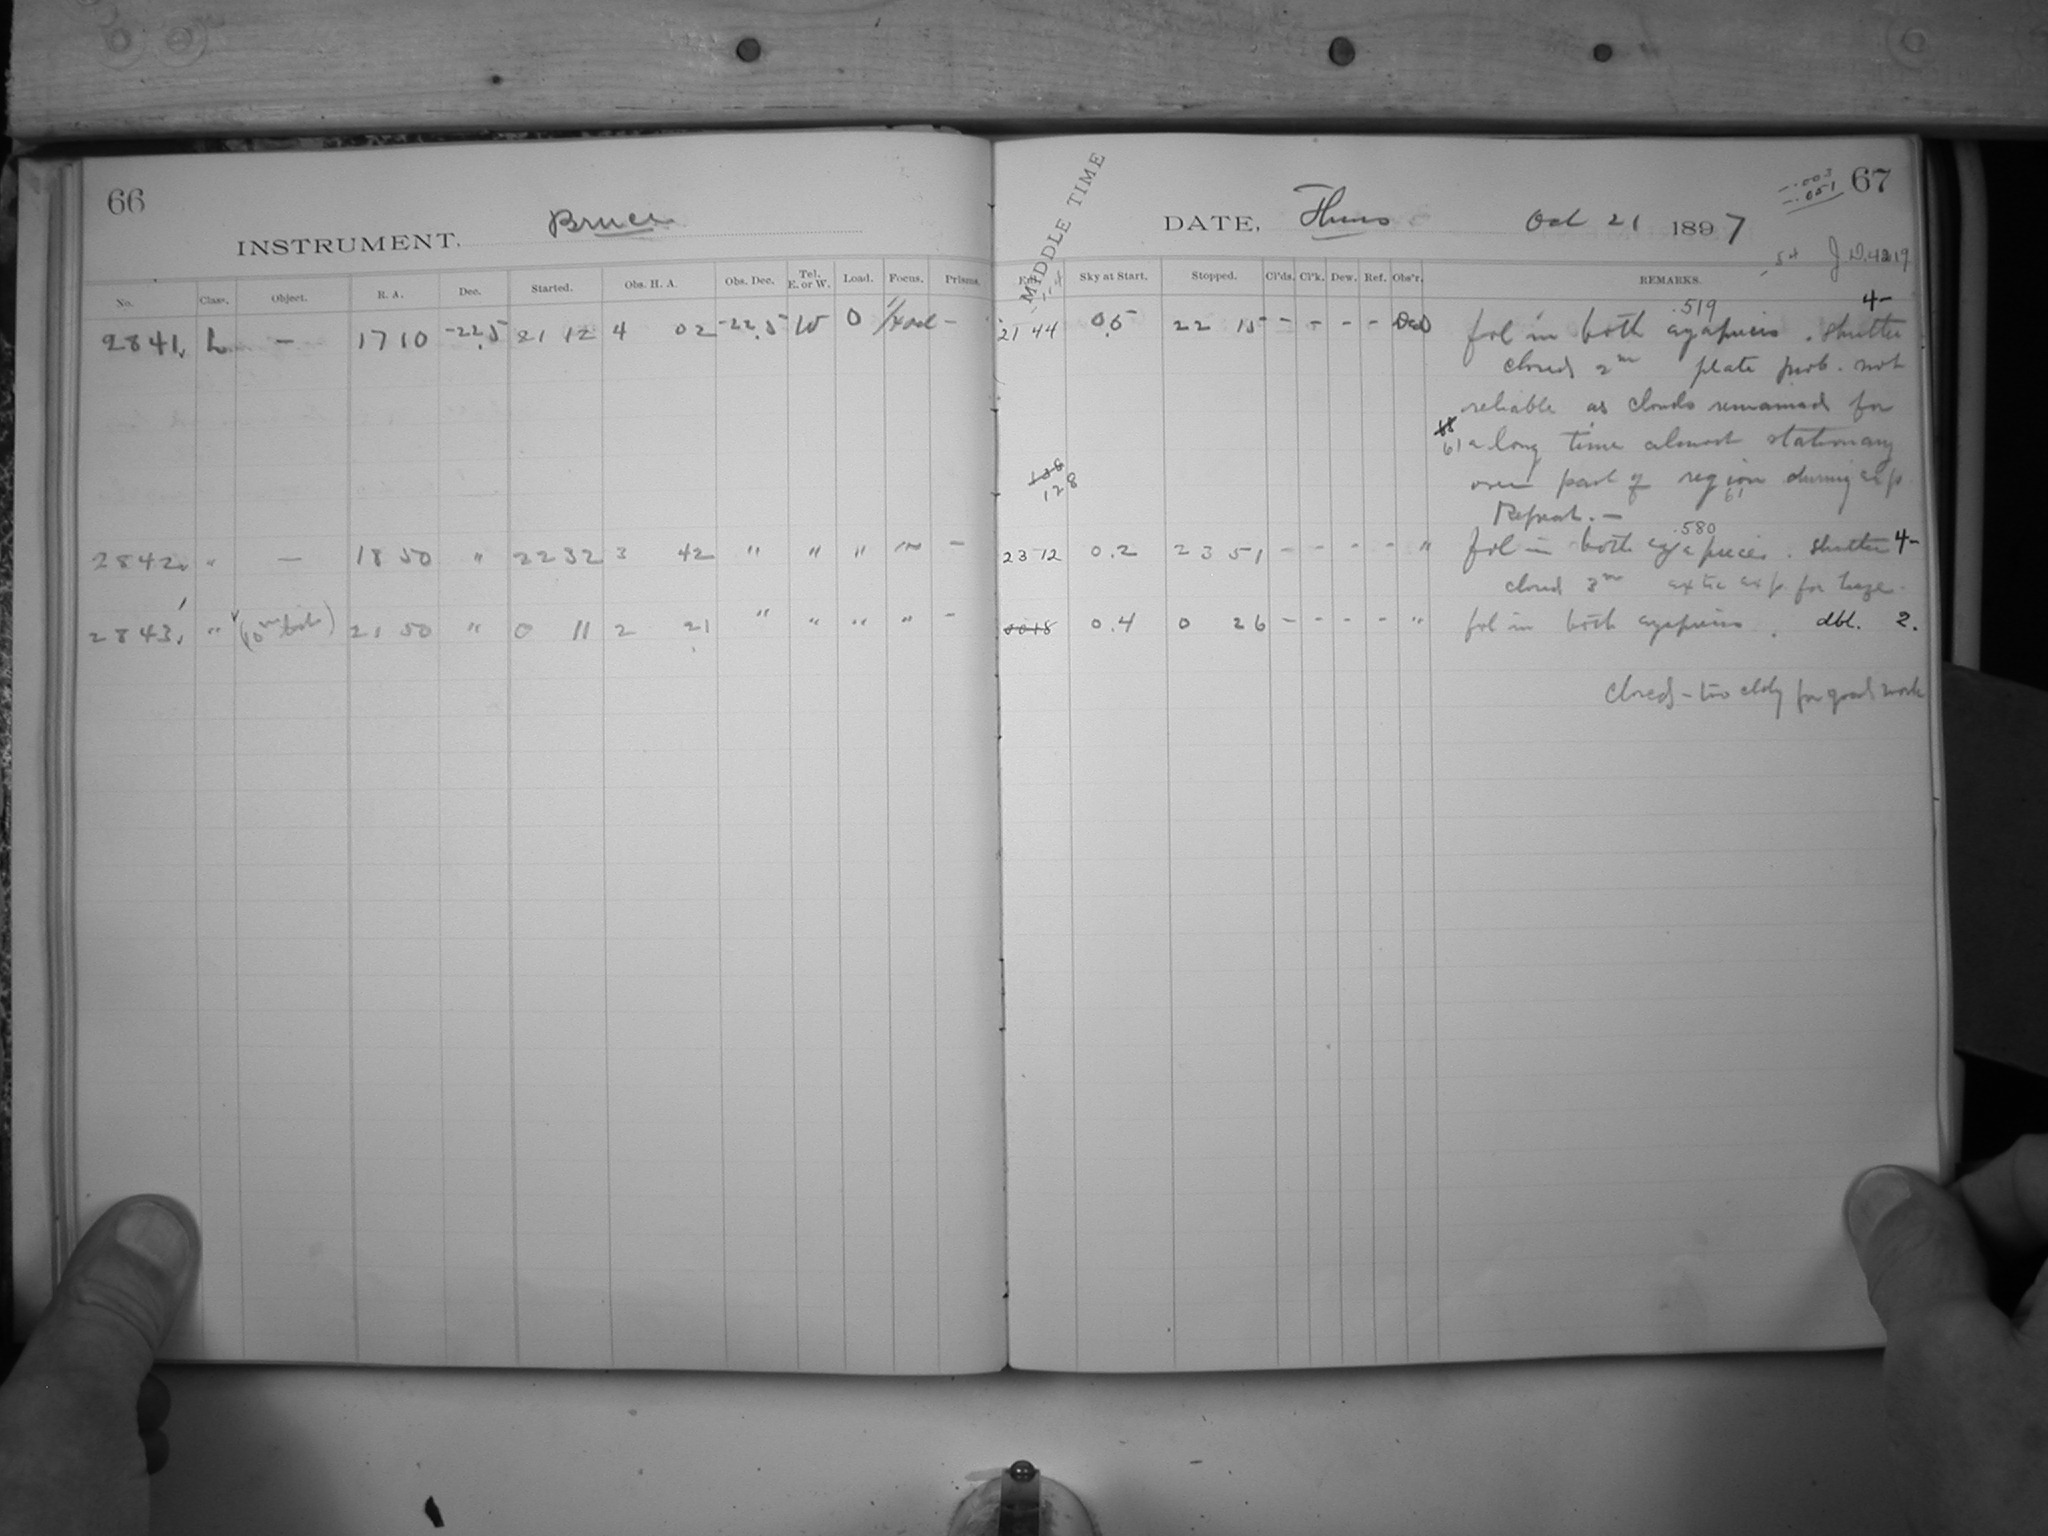 66
INSTRUMENT, Bruce
No. Class. Object. R. A. Dec. Started. Obs. H. A. Obs. Dec. Tel. E. or W. Load. Focus. Prisms.
2841 L — 17 10 -22.5 21 12 4 02 -22.5 W 0 -
2842 " — 18 50 " 22 32 3 42 " " " -
2843 " 21 50 " 0 11 2 21 " " " " -
MIDDLE TIME
DATE, Thurs Oct 21 1897
67
-.003
-.051
J.D.
Sky at Start. Stopped. Cl'ds. Cl'k. Dew. Ref. Obs'r. REMARKS.
.519 4-
21 44 0.5 22 15 - - - - fol in both eyepieces. Shutter
closed 2m plate prob. not
reliable as clouds remained for
61 a long time almost stationary
over part of region during exp.
128
61
Repeat. —
.580
23 12 0.2 23 51 - - - - " fol in both eyepieces. Shutter 4-
closed 3m extra exp. for haze.
0018 0.4 0 26 - - - - " fol in both eyepieces. dbl. 2.
Closed - too cldy for good work